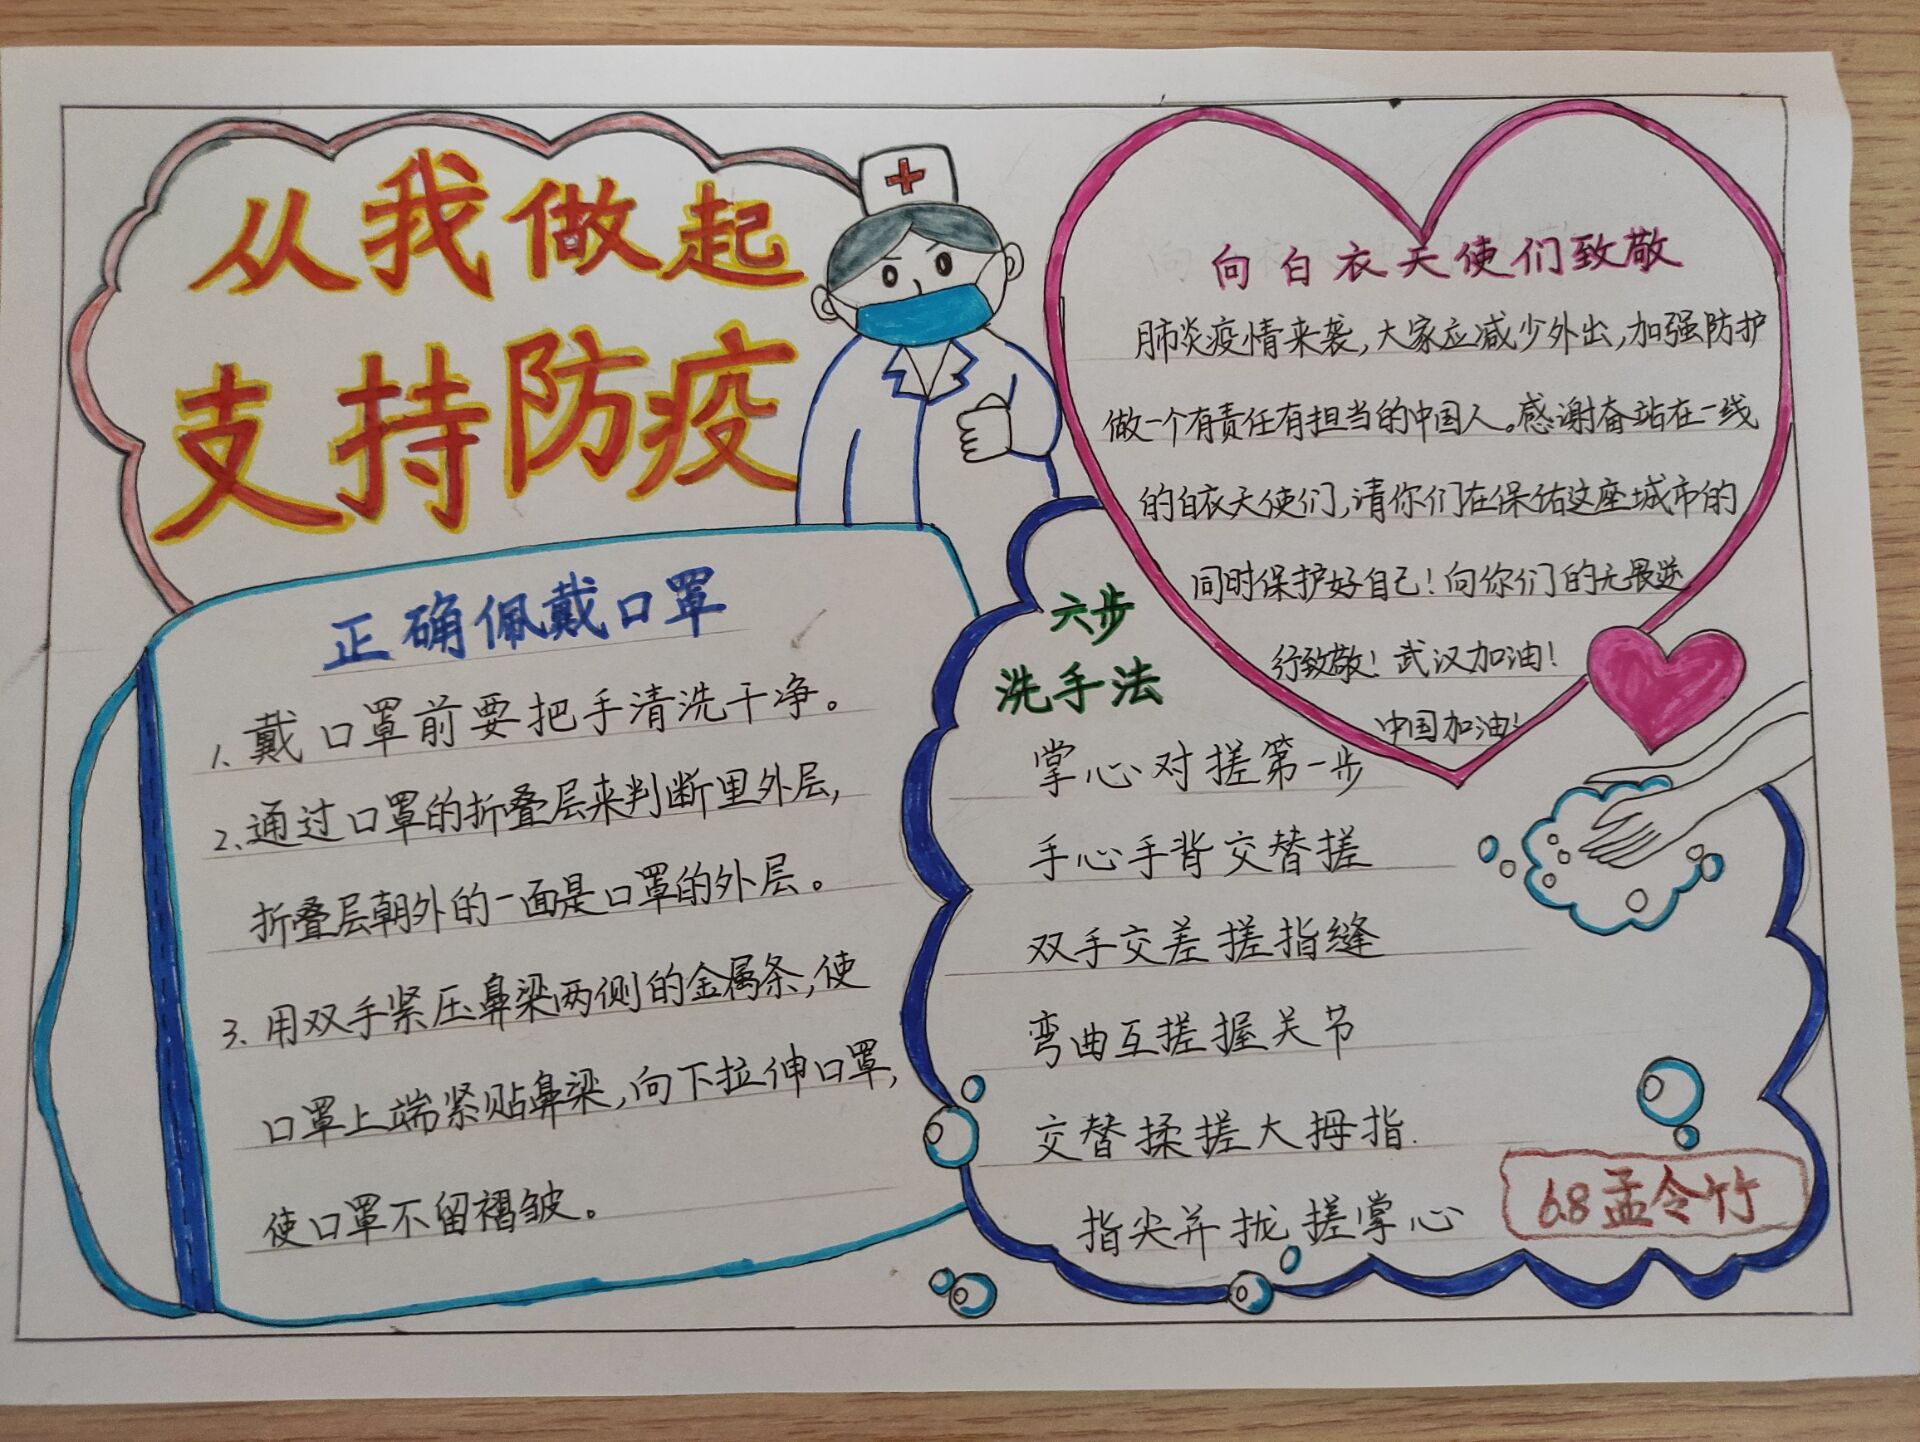 从我做起
支持防疫
正确佩戴口罩
1、戴口罩前要把手清洗干净。
2、通过口罩的折叠层来判断里外层,
折叠层朝外的一面是口罩的外层。
3、用双手紧压鼻梁两侧的金属条,使
口罩上端紧贴鼻梁,向下拉伸口罩,
使口罩不留褶皱。
向白衣天使们致敬
肺炎疫情来袭,大家应减少外出,加强防护
做一个有责任有担当的中国人。感谢奋站在一线
的白衣天使们,请你们在保佑这座城市的
同时保护好自己!向你们的无畏逆
行致敬!武汉加油!
中国加油!
六步
洗手法
掌心对搓第一步
手心手背交替搓
双手交差搓指缝
弯曲互搓握关节
交替揉搓大拇指.
指尖并拢搓掌心
6.8孟令竹